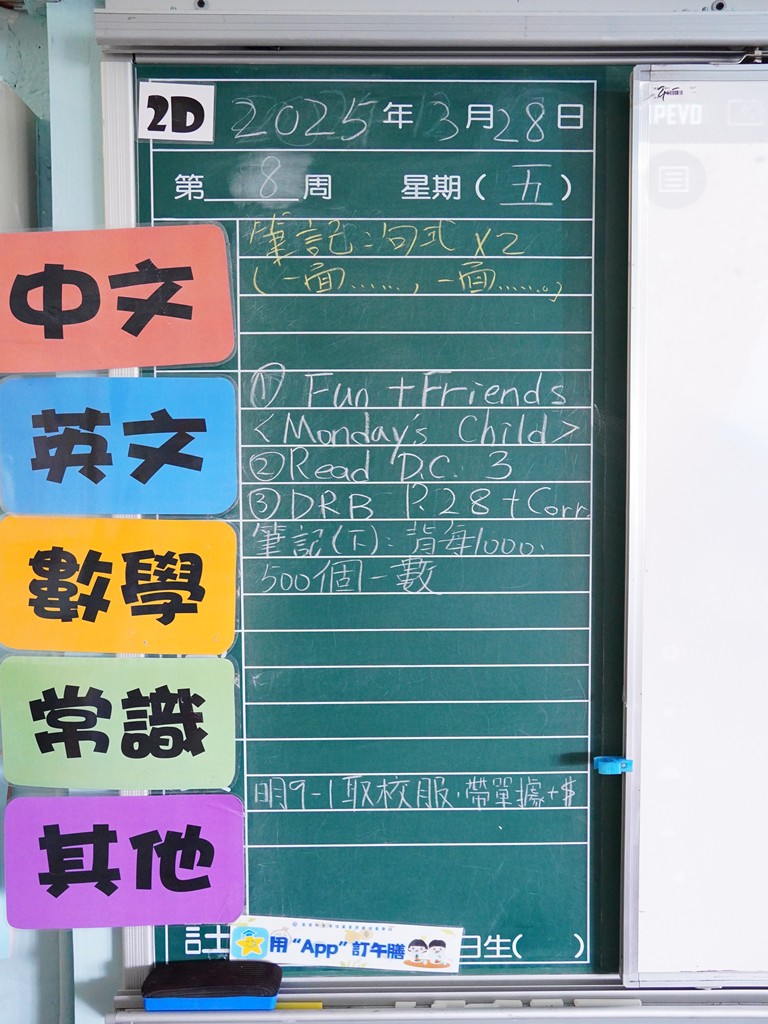 2D 2025年3月28日
第8周 星期(五)
中文
筆記:句式 x2
(一面……,一面……。)
英文
① Fun + Friends
<Monday's Child>
② Read D.C. 3
③ DRB P.28 + Corr.
數學
筆記(下): 背每1000.
500個一數
常識
其他
明9-1取校服.帶單據+$
用 “App” 訂午膳
日生( )